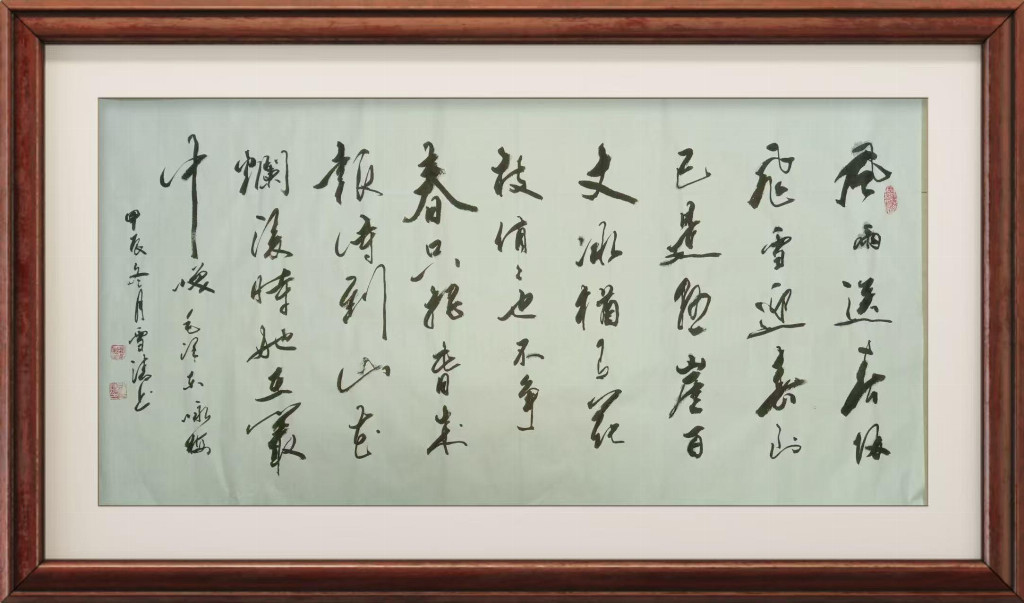 風雨送春归
飛雪迎春到
已是懸崖百
丈冰猶有花
枝俏々也不争
春只把春来
報待到山花
爛漫時她在叢
中咲 毛泽东咏梅
甲辰冬月雪涛书